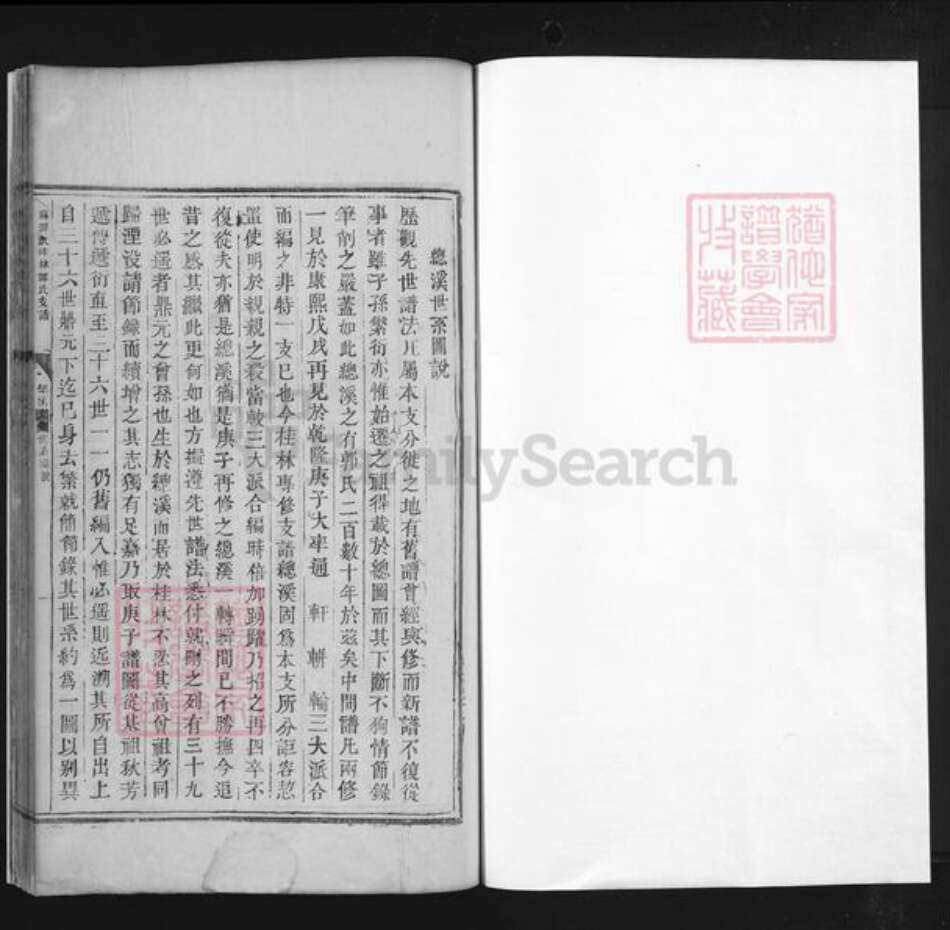 總溪世系圖說
歷觀先世譜法凡屬本支分徙之地有舊譜曾經與修而新譜不復從
事者雖子孫繁衍亦惟始遷之祖得載於總圖而其下斷不狥情節錄
筆削之嚴蓋如此總溪之有郭氏二百數十年於茲矣中間譜凡兩修
一見於康熙戊戌再見於乾隆庚子大率通 軒 輧 輪三大派合
而編之非特一支已也今桂林專修支譜總溪固為本支所分詎容恝
置使明於親親之殺當敝三大派合編時倍加踴躍乃招之再四卒不
復從夫亦猶是總溪猶是庚子再修之總溪一轉瞬間已不勝撫今追
昔之感其繼此更何如也方擬遵先世譜法悉付就刪之列有三十九
世必遥者鼎元之曾孫也生於總溪而居於桂林不忍其高曾祖考同
歸湮没請節錄而續增之其志獨有足嘉乃取庚子譜圖從基祖秋芳
遞傳遞衍直至三十六世一一仍舊編入惟必遥則近溯其所自出上
自三十六世鼎元下迄已身去繁就簡節錄其世系約為一圖以别異
譜學會
收藏
FamilySearch